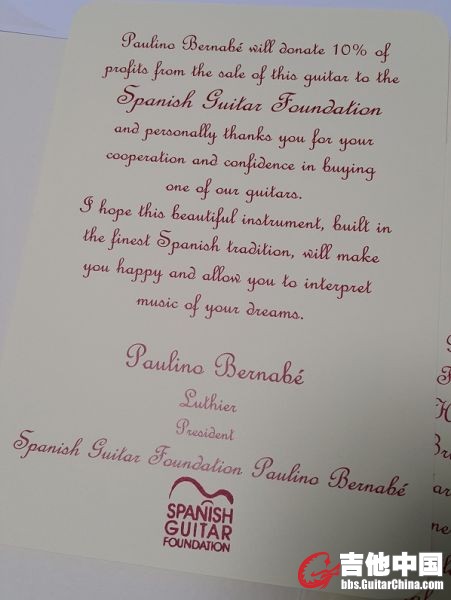 Paulino Bernabé will donate 10% of
profits from the sale of this guitar to the
Spanish Guitar Foundation
and personally thanks you for your
cooperation and confidence in buying
one of our guitars.
I hope this beautiful instrument, built in
the finest Spanish tradition, will make
you happy and allow you to interpret
music of your dreams.
Paulino Bernabé
Luthier
President
Spanish Guitar Foundation Paulino Bernabé
SPANISH
GUITAR
FOUNDATION
吉他中国
bbs.GuitarChina.com